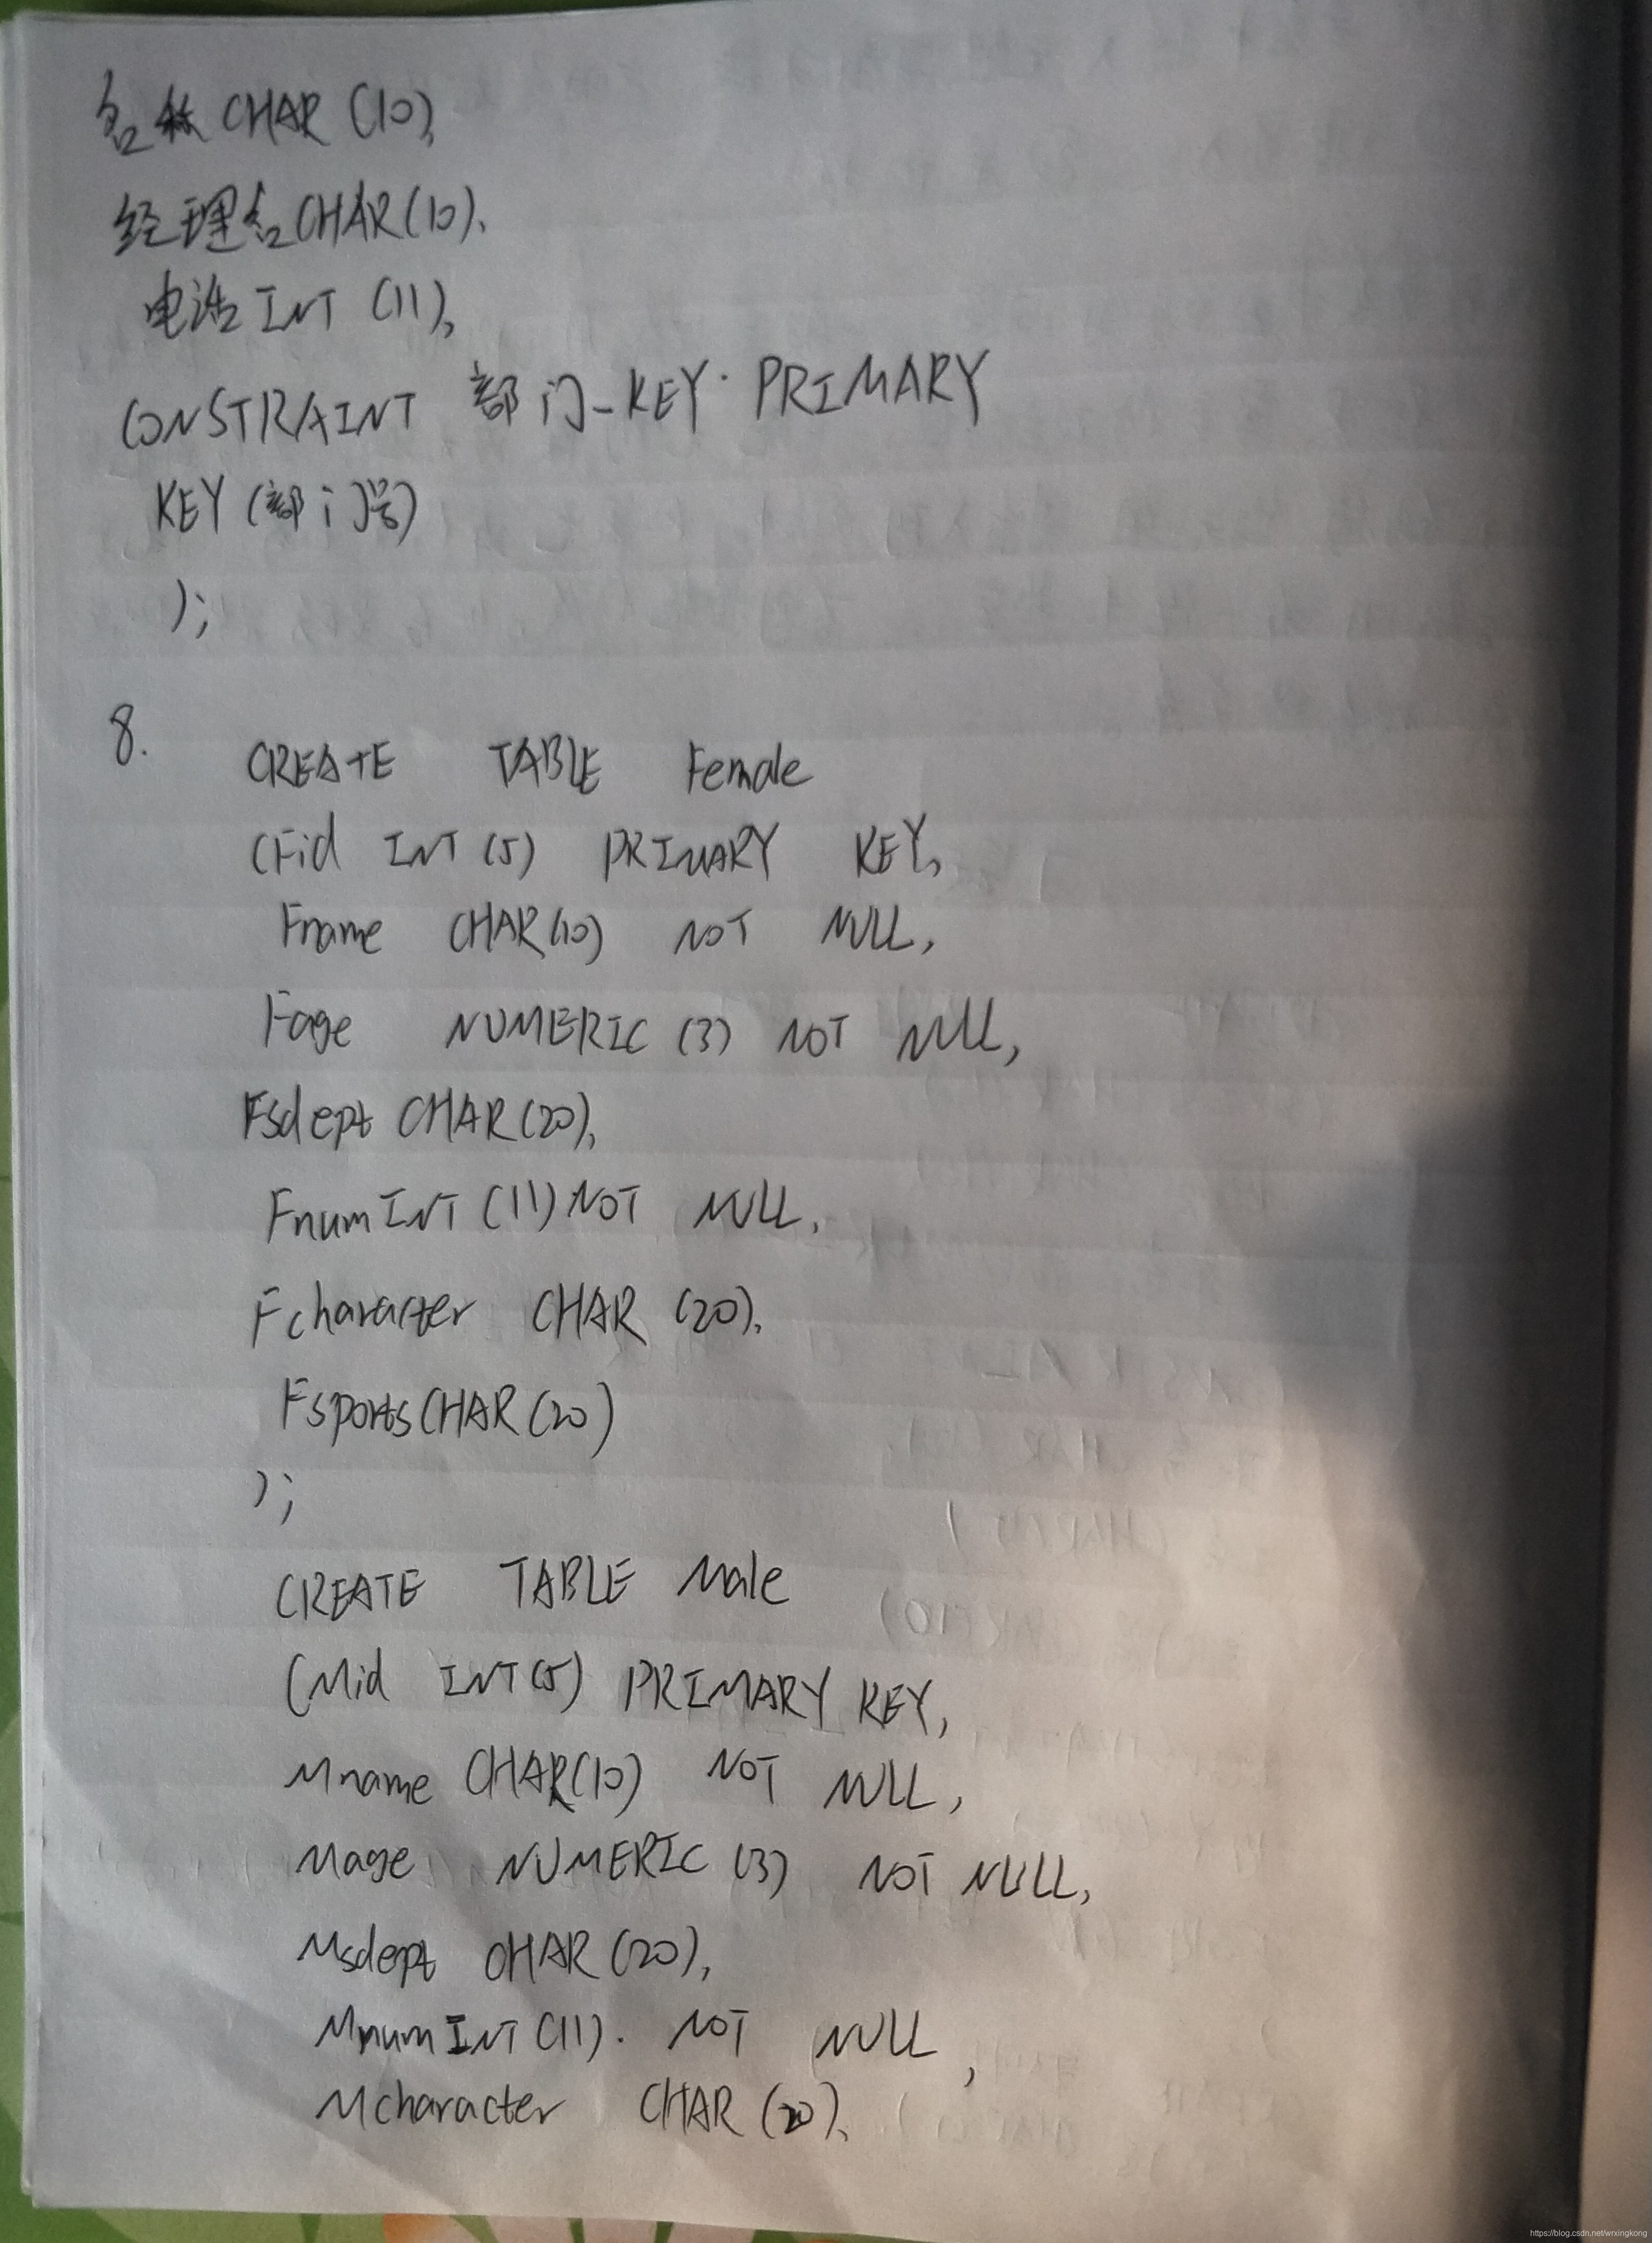 名称 CHAR (10),
经理名 CHAR(10),
电话 INT (11),
CONSTRAINT 部门_KEY PRIMARY
KEY (部门号)
);
8. CREATE TABLE Female
(Fid INT (5) PRIMARY KEY,
Fname CHAR(10) NOT NULL,
Fage NUMERIC (3) NOT NULL,
Fsdept CHAR(20),
Fnum INT (11) NOT NULL,
Fcharacter CHAR (20),
Fsports CHAR (20)
);
CREATE TABLE Male
(Mid INT(5) PRIMARY KEY,
Mname CHAR(10) NOT NULL,
Mage NUMERIC (3) NOT NULL,
Msdept CHAR (20),
Mnum INT (11). NOT NULL,
Mcharacter CHAR (20),
https://blog.csdn.net/wrxingkong